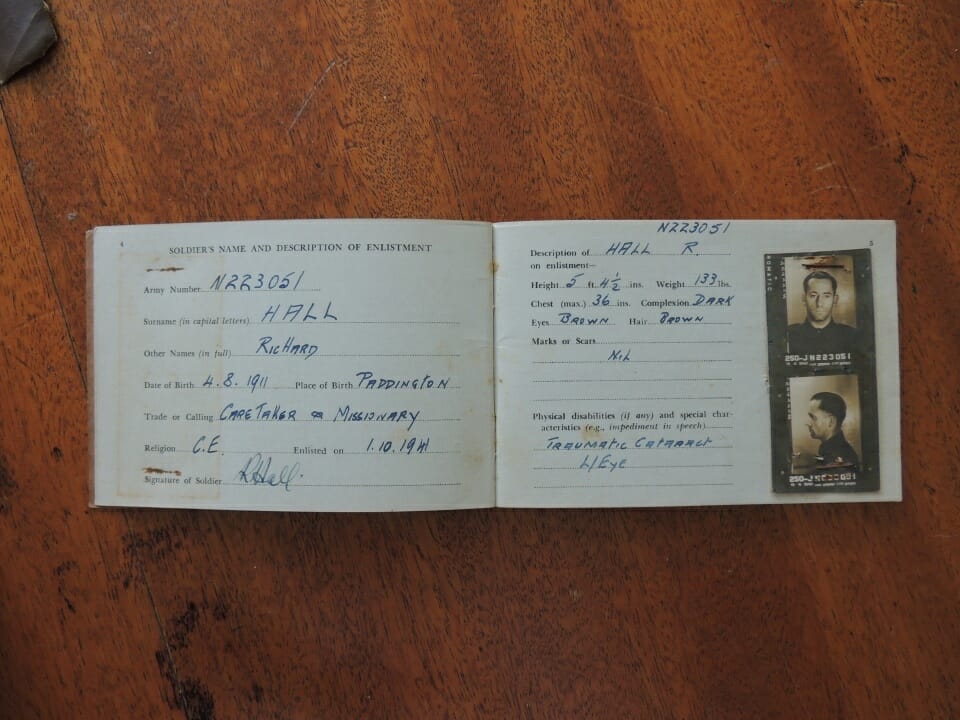 4
SOLDIER'S NAME AND DESCRIPTION OF ENLISTMENT
Army Number N223051
Surname (in capital letters) HALL
Other Names (in full) RICHARD
Date of Birth 4.8.1911 Place of Birth PADDINGTON
Trade or Calling CARETAKER & MISSIONARY
Religion C.E. Enlisted on 1.10.1941
Signature of Soldier RHall.
N223051
5
Description of HALL R.
on enlistment—
Height 5 ft. 4½ ins. Weight 133 lbs.
Chest (max.) 36 ins. Complexion DARK
Eyes BROWN Hair BROWN
Marks or Scars
NIL
Physical disabilities (if any) and special char-
acteristics (e.g., impediment in speech)
TRAUMATIC CATARACT
L/EYE
250-J N223051